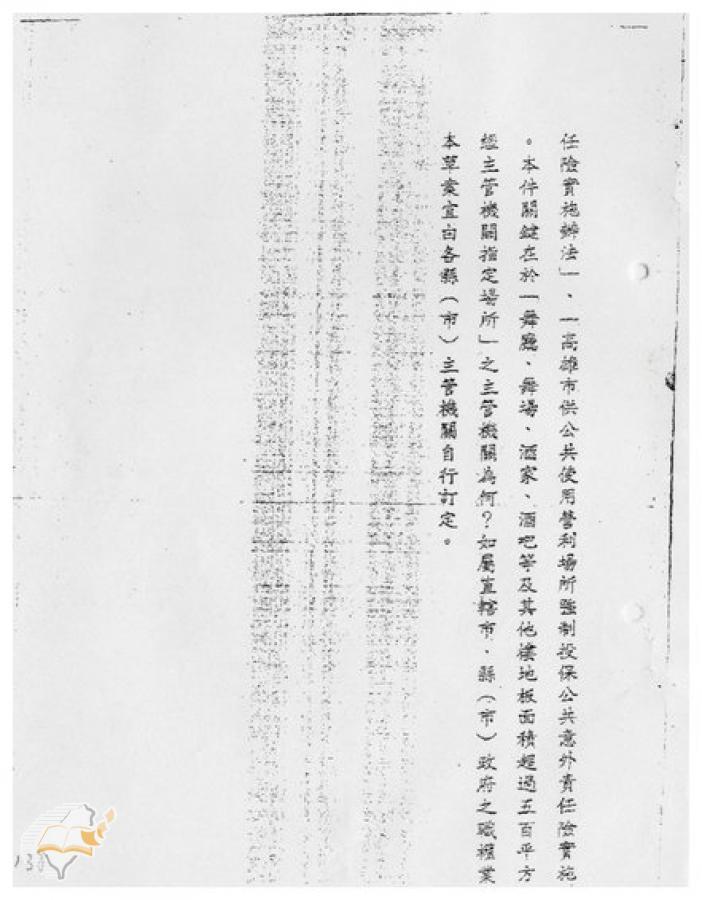 任險實施辦法」、「高雄市供公共使用營利場所強制投保公共意外責任險實施
。本件關鍵在於「舞廳、舞場、酒家、酒吧等及其他樓地板面積超過五百平方
經主管機關指定場所」之主管機關為何？如屬直轄市、縣（市）政府之職權業
本草案宜由各縣（市）主管機關自行訂定。
138